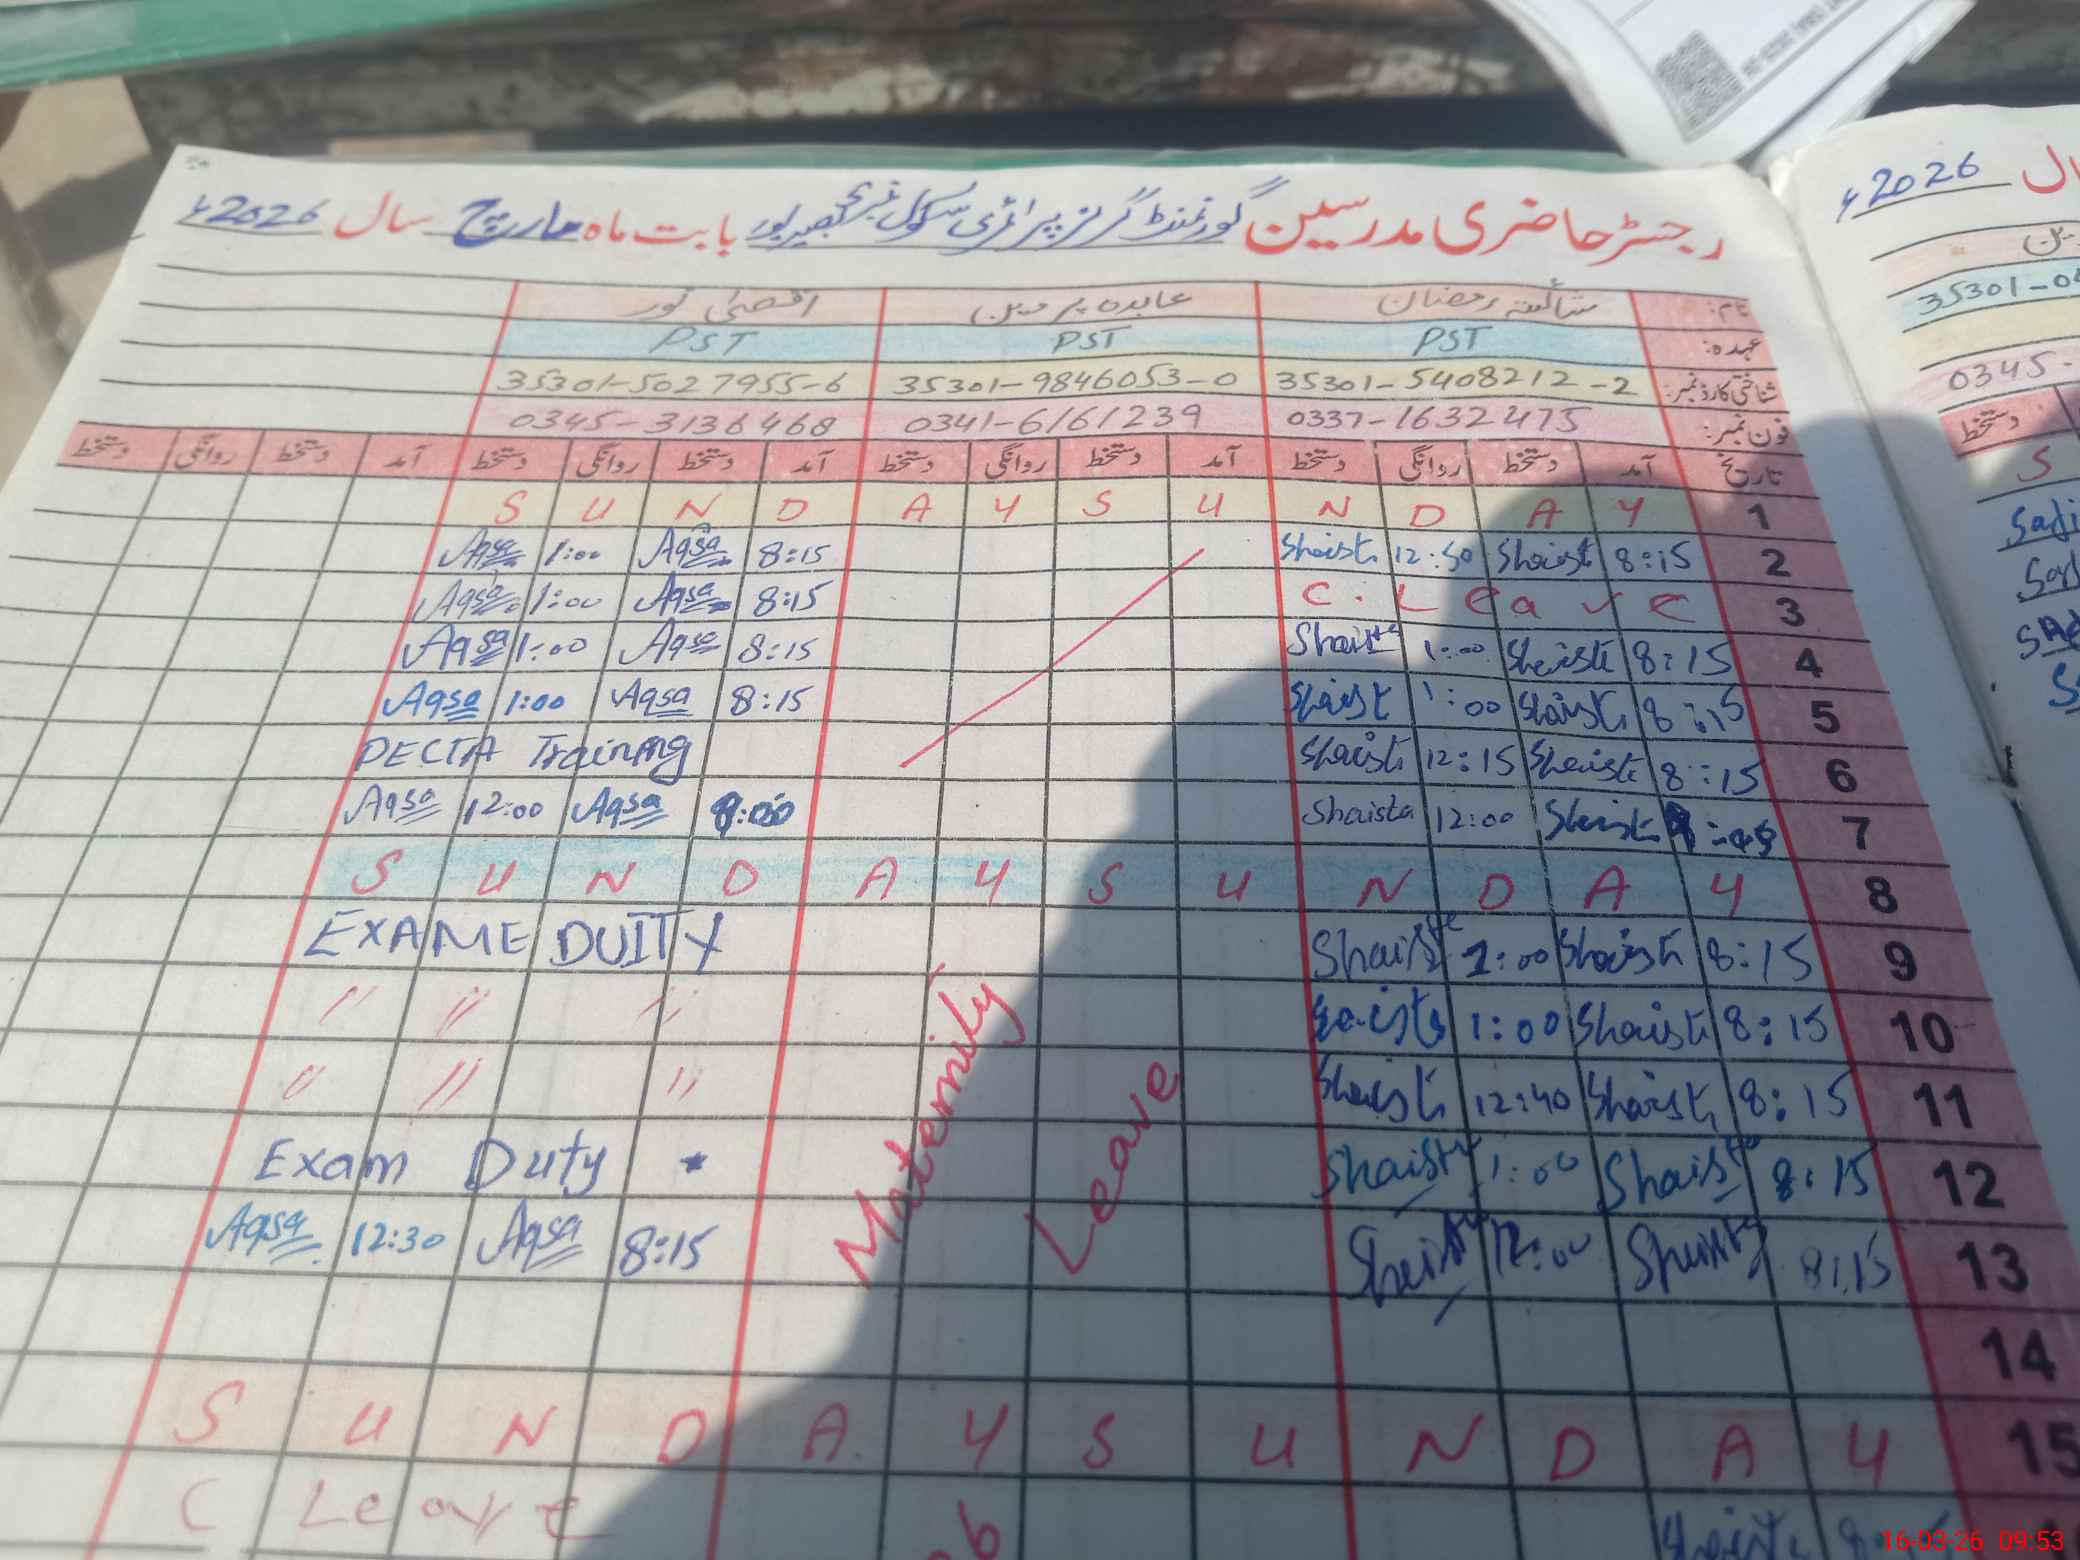 رجسٹر حاضری مدرسین گورنمنٹ گرلز پرائمری سکول بصیرپور بابت ماہ مارچ سال 2026ء
نام: شائستہ رمضان عابدہ پروین اقصیٰ نور
عہدہ: PST PST PST
شناختی کارڈ نمبر: 35301-5408212-2 35301-9846053-0 35301-5027955-6
فون نمبر: 0337-1632475 0341-6161239 0345-3136468
تاریخ آمد دستخط روانگی دستخط آمد دستخط روانگی دستخط آمد دستخط روانگی دستخط آمد دستخط روانگی دستخط
S U N D A Y S U N D A Y 1
Aqsa 1:00 Aqsa 8:15 Shaista 12:30 Shaista 8:15 2
Aqsa 1:00 Aqsa 8:15 C. Leave 3
Aqsa 1:00 Aqsa 8:15 Shaista 1:00 Shaista 8:15 4
Aqsa 1:00 Aqsa 8:15 Shaista 1:00 Shaista 8:15 5
PECTA Training Shaista 12:15 Shaista 8:15 6
Aqsa 12:00 Aqsa 8:00 Shaista 12:00 Shaista 7
S U N D A Y S U N D A Y 8
EXAME DUITY Shaista 1:00 Shaista 8:15 9
" " " Shaista 1:00 Shaista 8:15 10
" " " Shaista 12:40 Shaista 8:15 11
Exam Duty Shaista 1:00 Shaista 8:15 12
Aqsa 12:30 Aqsa 8:15 Shaista 12:00 Shaista 8:15 13
Maternity Leave
14
S U N D A Y S U N D A Y 15
C Leave Shaista
2026ء
35301-0
0345-
دستخط
S
16-03-26 09:53